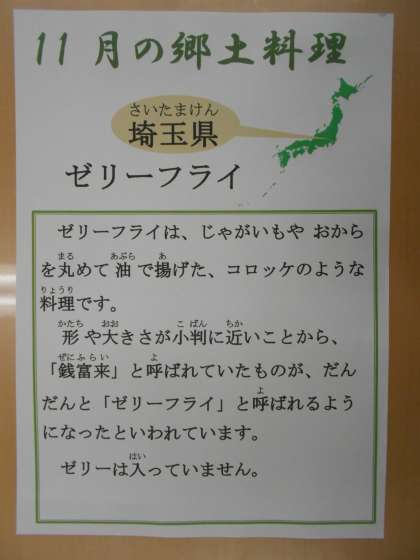 11月の郷土料理
さいたまけん
埼玉県
ゼリーフライ
ゼリーフライは、じゃがいもや おから
まる あぶら あ
を丸めて油で揚げた、コロッケのような
りょうり
料理です。
かたち おお こばん ちか
形や大きさが小判に近いことから、
ぜにふらい よ
「銭富来」と呼ばれていたものが、だん
よ
だんと「ゼリーフライ」と呼ばれるよう
になったといわれています。
はい
ゼリーは入っていません。